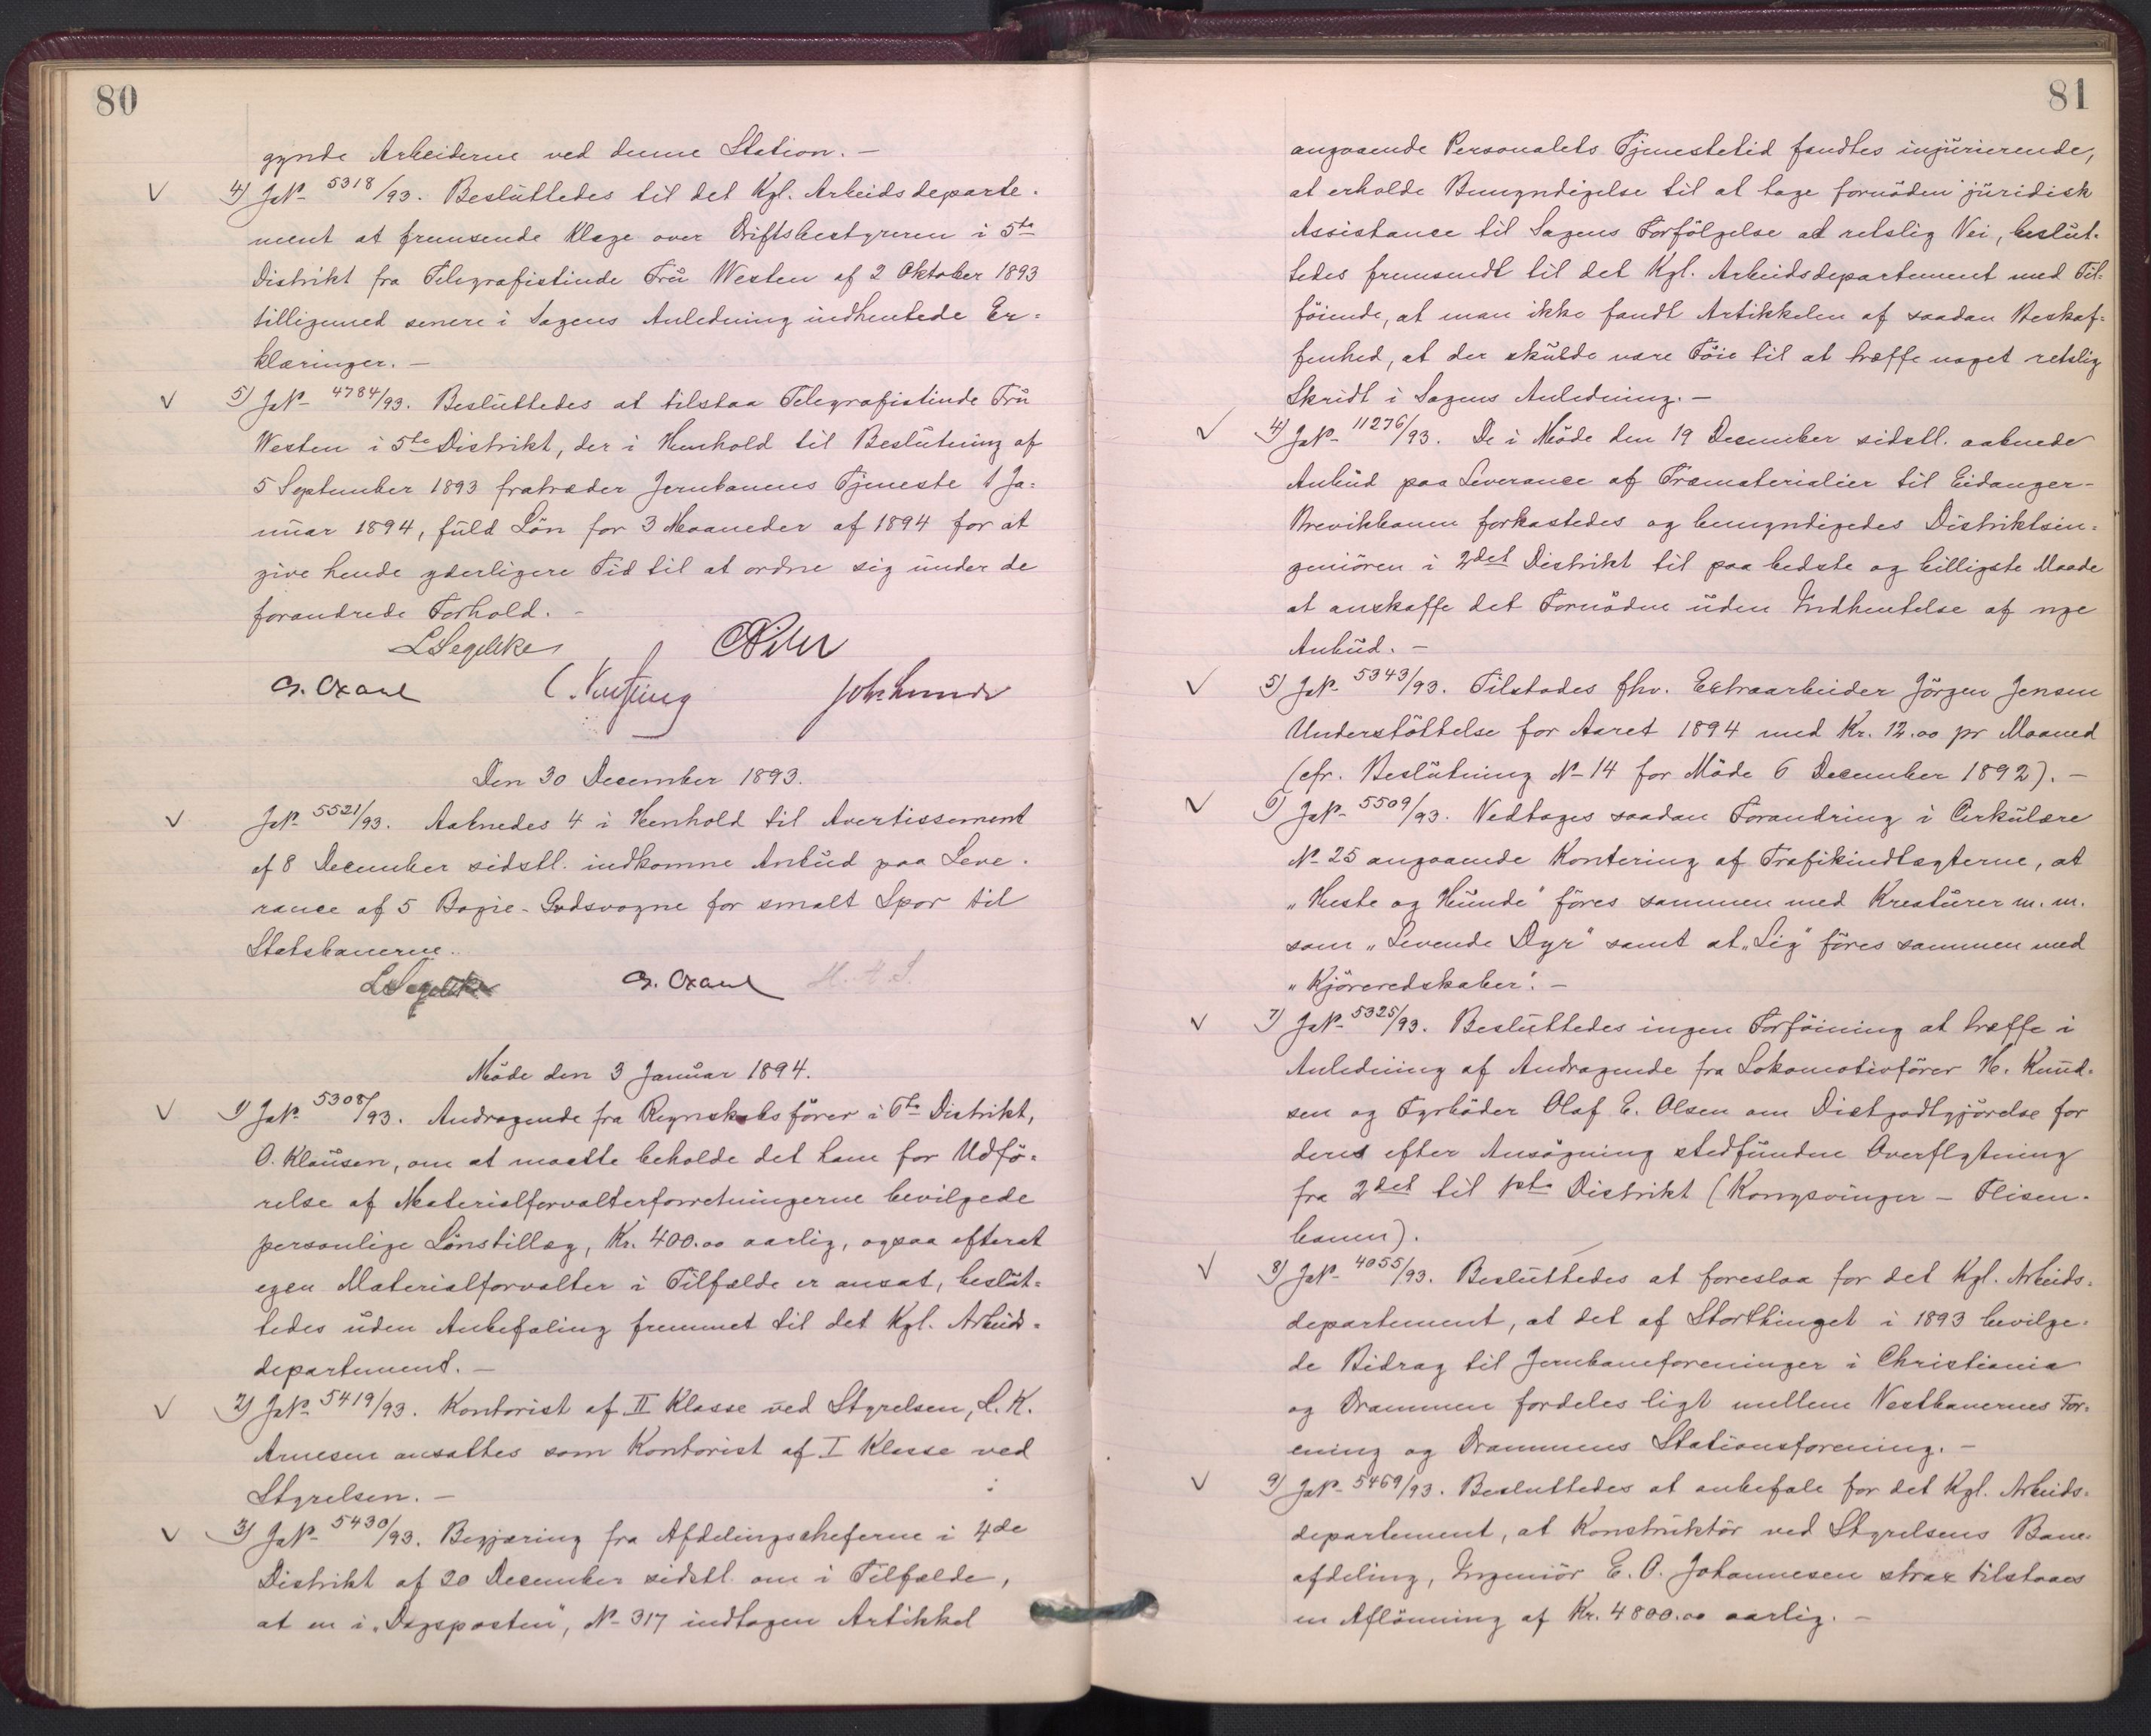 80
gynde Arbeiderne ved denne Station. —
4) JN⁰ 5318/93. Besluttedes til det Kgl. Arbeidsdeparte-
ment at fremsende Klage over Driftsbestyreren i 5te
Distrikt fra Telegrafistinde Fru Westen af 2 Oktober 1893
tilligemed senere i Sagens Anledning indhentede Er-
klæringer. —
5) JN⁰ 4784/93. Besluttedes at tilstaa Telegrafistinde Fru
Westen i 5te Distrikt, der i Henhold til Beslutning af
5 September 1893 fratræder Jernbanens Tjeneste 1 Ja-
nuar 1894, fuld Lön for 3 Maaneder af 1894 for at
give hende yderligere Tid til at ordne sig under de
forandrede Forhold. —
LSegelcke
Den 30 December 1893.
JN⁰ 5521/93. Aabnedes 4 i Henhold til Avertissement
af 8 December sidstl. indkomne Anbud paa Leve-
rance af 5 Bogie-Godsvogne for smalt Spor til
Statsbanerne.
LSegelcke H. A. S.
Möde den 3 Januar 1894.
1) JN⁰ 5308/93. Andragende fra Regnskabsförer i 6te Distrikt,
O. Klausen, om at maatte beholde det ham for Udfö-
relse af Materialforvalterforretningerne bevilgede
personlige Lönstillæg, Kr. 400.00 aarlig, ogsaa efterat
egen Materialforvalter i Tilfælde er ansat, beslut-
tedes uden Anbefaling fremmet til det Kgl. Arbeids-
departement. —
2) JN⁰ 5419/93. Kontorist af II Klasse ved Styrelsen, L. K.
Arnesen ansattes som Kontorist af I Klasse ved
Styrelsen. —
3) JN⁰ 5430/93. Begjæring fra Afdelingscheferne i 4de
Distrikt af 20 December sidstl. om i Tilfælde,
at en i „Dagsposten", N⁰ 317 indtagen Artikkel
81
angaaende Personalets Tjenestetid fandtes injurierende,
at erholde Bemyndigelse til at tage fornöden juridisk
Assistance til Sagens Forfölgelse ad retslig Vei, beslut-
tedes fremsendt til det Kgl. Arbeidsdepartement med Til-
föiende, at man ikke fandt Artikkelen af saadan Beskaf-
fenhed, at der skulde være Föie til at træffe noget retslig
Skridt i Sagens Anledning. —
4) JN⁰ 11276/93. De i Möde den 19 December sidstl. aabnede
Anbud paa Leverance af Træmaterialier til Eidanger-
Brevikbanen forkastedes og bemyndigedes Distriktsin-
geniören i 2det Distrikt til paa bedste og billigste Maade
at anskaffe det Fornödne uden Indhentelse af nye
Anbud. —
5) JN⁰ 5343/93. Tilstodes fhv. Extraarbeider Jörgen Jensen
Understöttelse for Aaret 1894 med Kr. 12.00 pr Maaned
(cfr. Beslutning N⁰ 14 for Möde 6 December 1892). —
6) JN⁰ 5509/93. Vedtages saadan Forandring i Cirkulære
N⁰ 25 angaaende Kontering af Trafikindtægterne, at
„Heste og Hunde" föres sammen med Kreaturer m. m.
som „Levende Dyr" samt at „Lig" föres sammen med
„Kjöreredskaber". —
7) JN⁰ 5325/93. Besluttedes ingen Forföining at træffe i
Anledning af Andragende fra Lokomotivförer H. Knud-
sen og Fyrböder Olaf E. Olsen om Diætgodtgjörelse for
deres efter Ansögning stedfundne Overflytning
fra 2det til 1ste Distrikt (Kongsvinger – Flisen-
banen).
8) JN⁰ 4055/93. Besluttedes at foreslaa for det Kgl. Arbeids-
departement, at det af Storthinget i 1893 bevilge-
de Bidrag til Jernbaneforeninger i Christiania
og Drammen fordeles ligt mellem Vestbanernes For-
ening og Drammens Stationsforening. —
9) JN⁰ 5469/93. Besluttedes at anbefale for det Kgl. Arbeids-
departement, at Konstruktör ved Styrelsens Bane-
afdeling, Ingeniör E. O. Johannesen strax tilstaaes
en Aflönning af Kr. 4800.00 aarlig. —